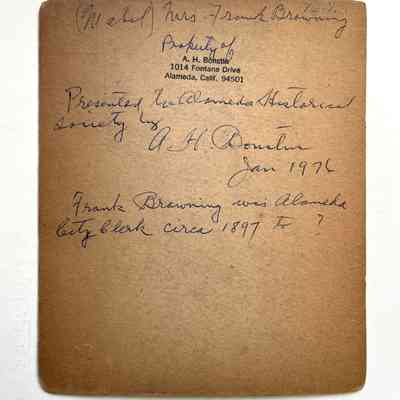 (Mabel) Mrs. Frank Browning
Property of
A. H. Bonstin
1014 Fontana Drive
Alameda, Calif. 94501
Presented to Alameda Historical
Society by
A. H. Bonstin
Jan 1976
Frank Browning was Alameda
City Clerk circa 1897 to ?